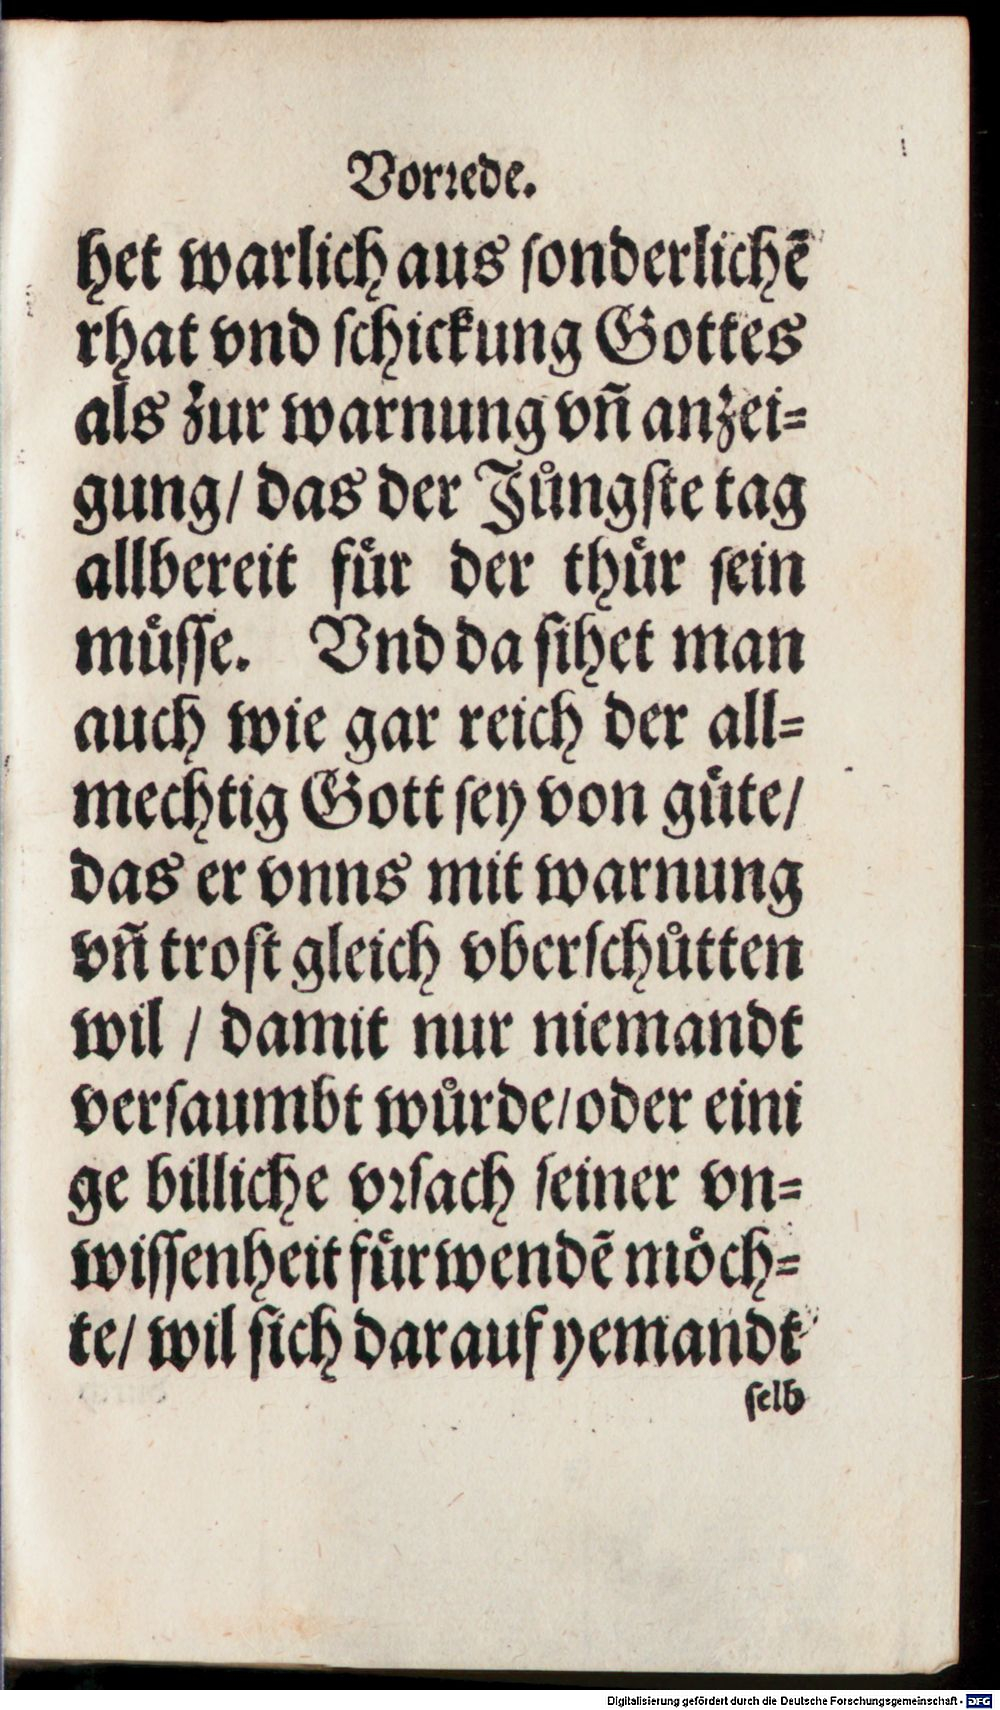 Vorꝛede.
het warlich aus ſonderlichē
rhat vnd ſchickung Gottes
als zur warnung vn̄ anzei⸗
gung/ das der Juͤngſte tag
allbereit fuͤr der thuͤr ſein
muͤſſe. Vnd da ſihet man
auch wie gar reich der all⸗
mechtig Gott ſey von guͤte/
das er vnns mit warnung
vn̄ troſt gleich vberſchuͤtten
wil / damit nur niemandt
verſaumbt wuͤrde/oder eini
ge billiche vꝛſach ſeiner vn⸗
wiſſenheit fuͤrwendē moͤch⸗
te/ wil ſich darauf yemandt
ſelb
Digitalisierung gefördert durch die Deutsche Forschungsgemeinschaft - DFG